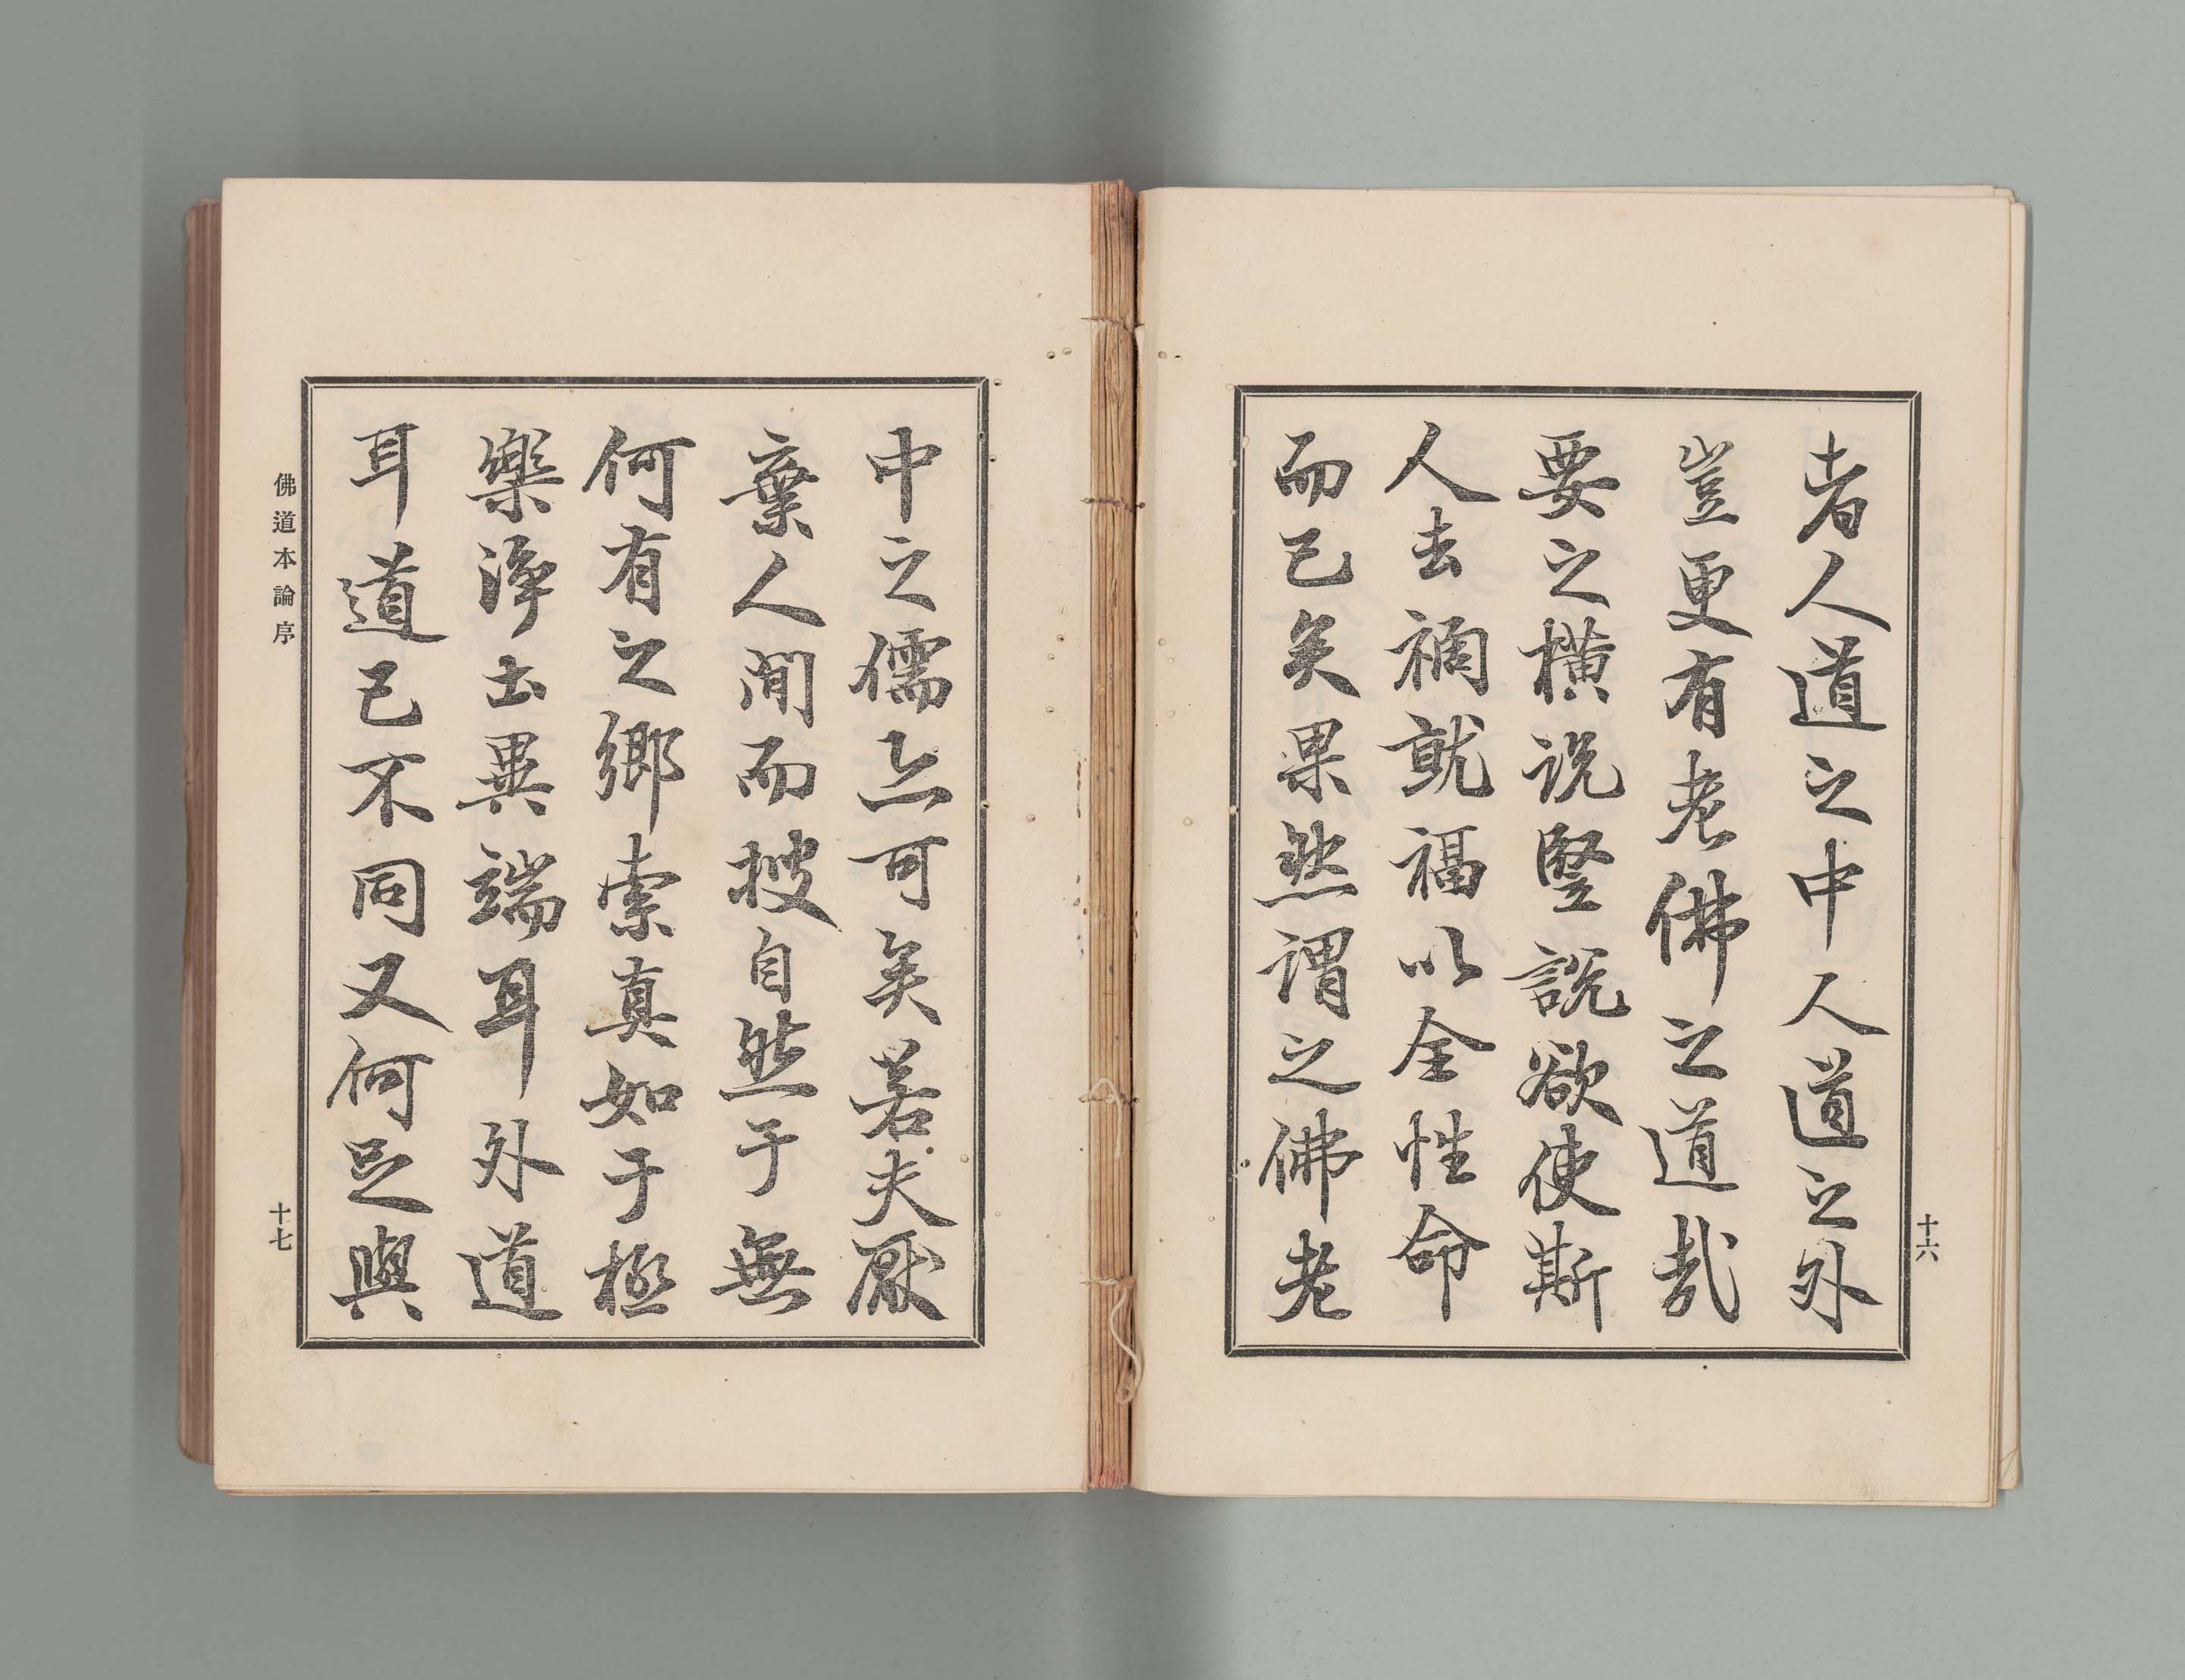 者人道之中人道之外
豈更有老佛之道哉
要之横説豎説欲使斯
人去禍就福以全性命
而已矣果然謂之佛老
十六
中之儒亦可矣若夫厭
棄人間而搜自然于無
何有之鄉索真如于極
樂淨土異端耳外道
耳道已不同又何足與
佛道本論序
十七